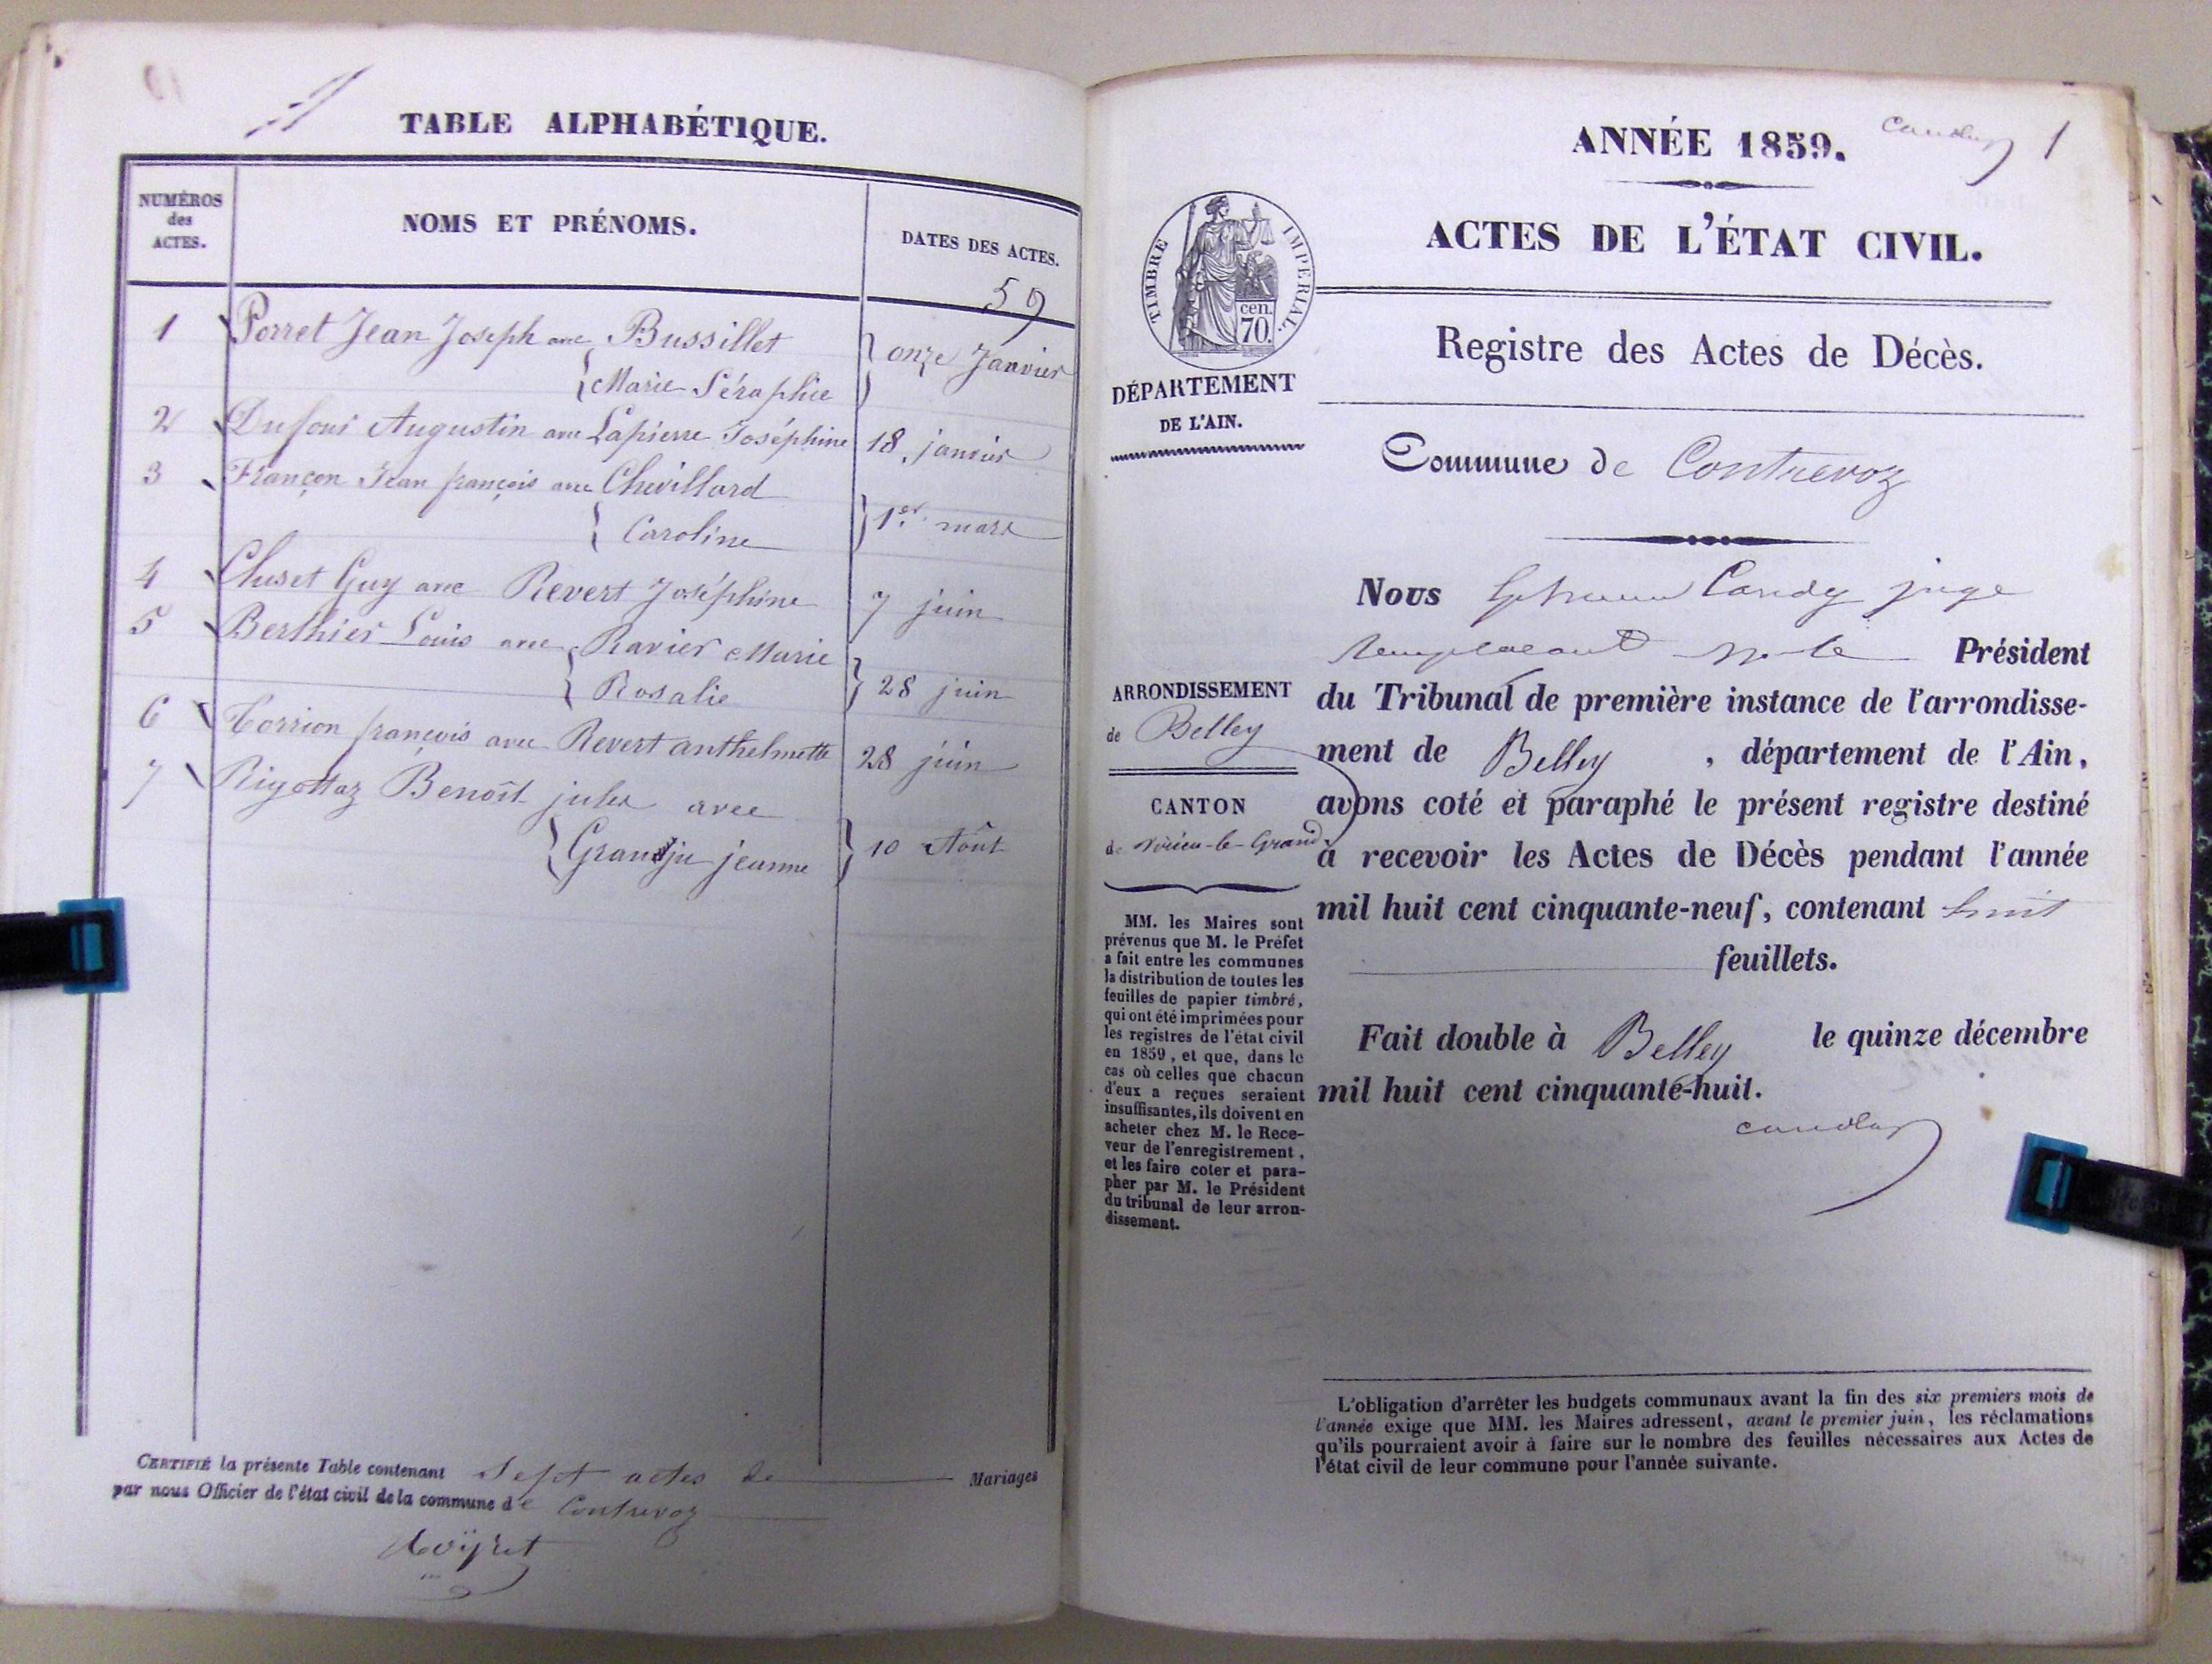 TABLE ALPHABÉTIQUE.
NUMÉROS
des
ACTES.
NOMS ET PRÉNOMS.
DATES DES ACTES.
59
1 Porret Jean Joseph avec Bussillet
Marie Séraphie
onze Janvier
2 Dufour Augustin avec Lapierre Joséphine 18 janvier
3 Françon Jean françois avec Chevillard
Caroline
1er mars
4 Cluset Guy avec Revert Joséphine 7 juin
5 Berthier Louis avec Ravier Marie
Rosalie
28 juin
6 Torrion françois avec Revert anthelmette 28 juin
7 Rigottaz Benoît jules avec
Grandju jeanne
10 Août
CERTIFIÉ la présente Table contenant Sept actes de Mariages
par nous Officier de l'état civil de la commune de Contrevoz
ANNÉE 1859.
1
ACTES DE L'ÉTAT CIVIL.
TIMBRE IMPERIAL.
cen.
70.
Registre des Actes de Décès.
DÉPARTEMENT
DE L'AIN.
Commune de Contrevoz
Nous Candy juge
remplacant Mr le Président
du Tribunal de première instance de l'arrondisse-
ment de Belley, département de l'Ain,
avons coté et paraphé le présent registre destiné
à recevoir les Actes de Décès pendant l'année
mil huit cent cinquante-neuf, contenant huit
feuillets.
Fait double à Belley le quinze décembre
mil huit cent cinquante-huit.
ARRONDISSEMENT
de Belley
CANTON
de Virieu-le-Grand
MM. les Maires sont
prévenus que M. le Préfet
a fait entre les communes
la distribution de toutes les
feuilles de papier timbré,
qui ont été imprimées pour
les registres de l'état civil
en 1859, et que, dans le
cas où celles que chacun
d'eux a reçues seraient
insuffisantes, ils doivent en
acheter chez M. le Rece-
veur de l'enregistrement,
et les faire coter et para-
pher par M. le Président
du tribunal de leur arron-
dissement.
L'obligation d'arrêter les budgets communaux avant la fin des six premiers mois de
l'année exige que MM. les Maires adressent, avant le premier juin, les réclamations
qu'ils pourraient avoir à faire sur le nombre des feuilles nécessaires aux Actes de
l'état civil de leur commune pour l'année suivante.